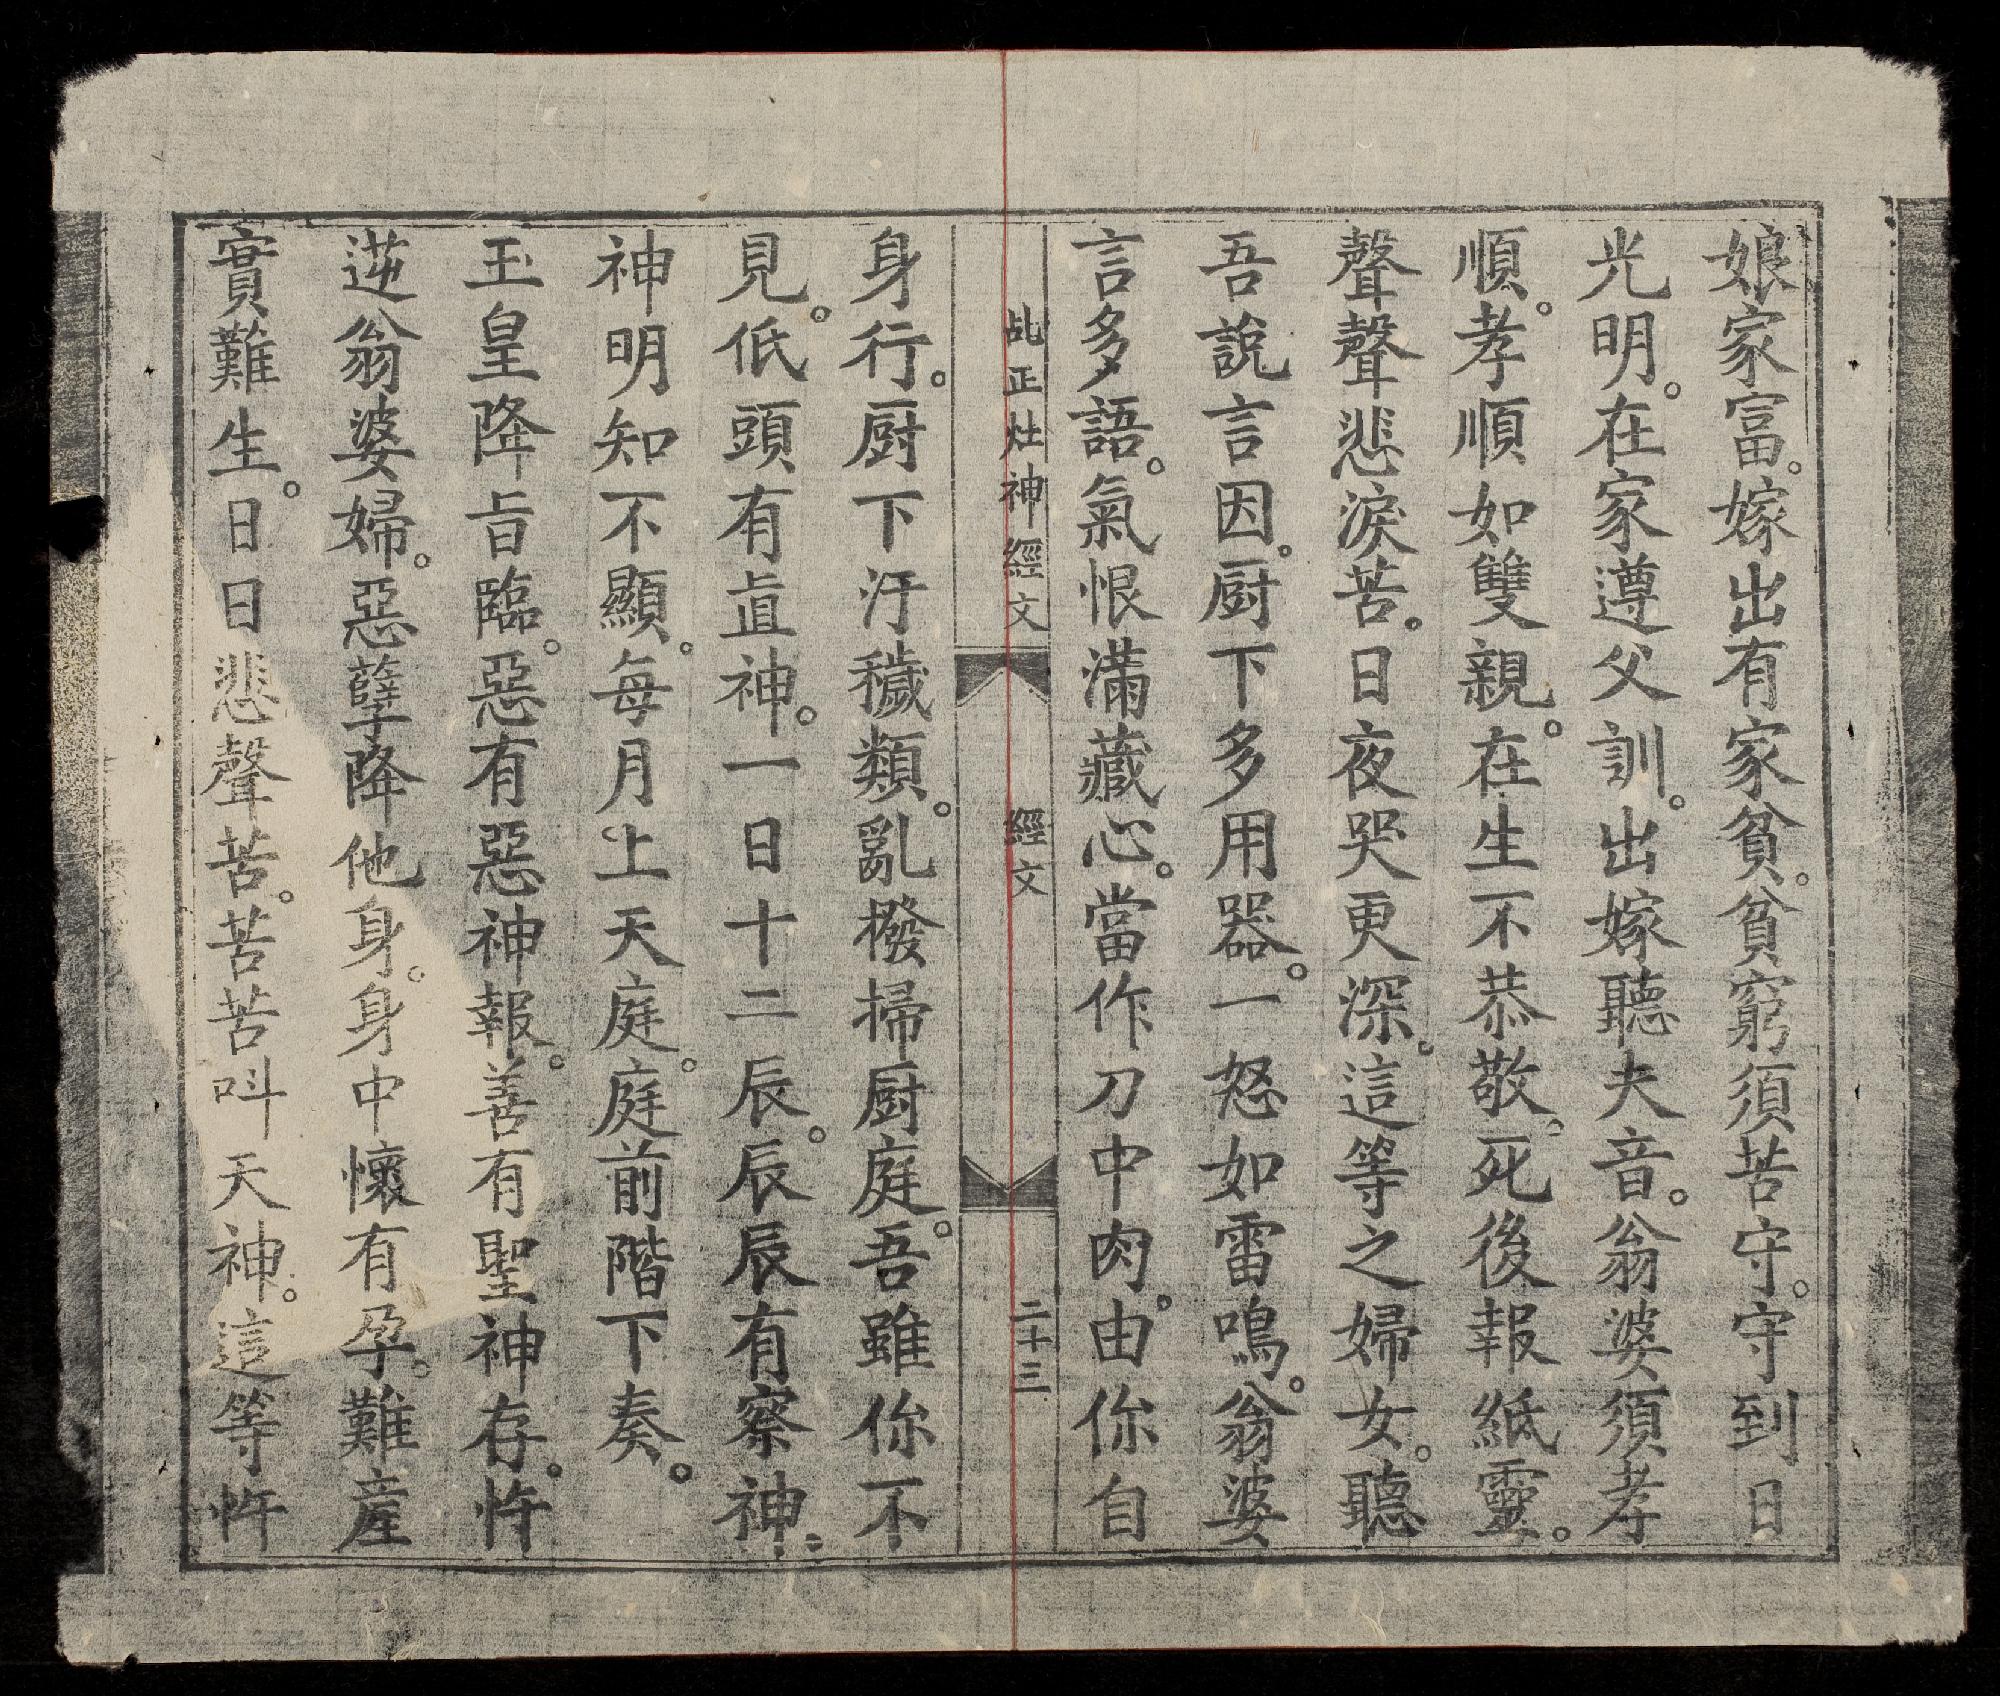 娘家富。嫁出有家貧。貧窮須苦守。守到日
光明。在家遵父訓。出嫁聽夫音。翁婆須孝
順。孝順如雙親。在生不恭敬。死後報紙靈。
聲聲悲淚苦。日夜哭更深。這等之婦女。聽
吾說言因。厨下多用器。一怒如雷鳴。翁婆
言多語。氣恨滿藏心。當作刀中肉。由你自
正灶神經文 經文 二十三
身行。厨下汙穢類。亂撥掃厨庭。吾雖你不
見。低頭有直神。一日十二辰。辰辰有察神。
神明知不顯。每月上天庭。庭前階下奏。
玉皇降旨臨。惡有惡神報。善有聖神存。忤
逆翁婆婦。惡孽降他身。身中懷有孕。難產
實難生。日日悲聲苦。苦苦叫天神。這等忤